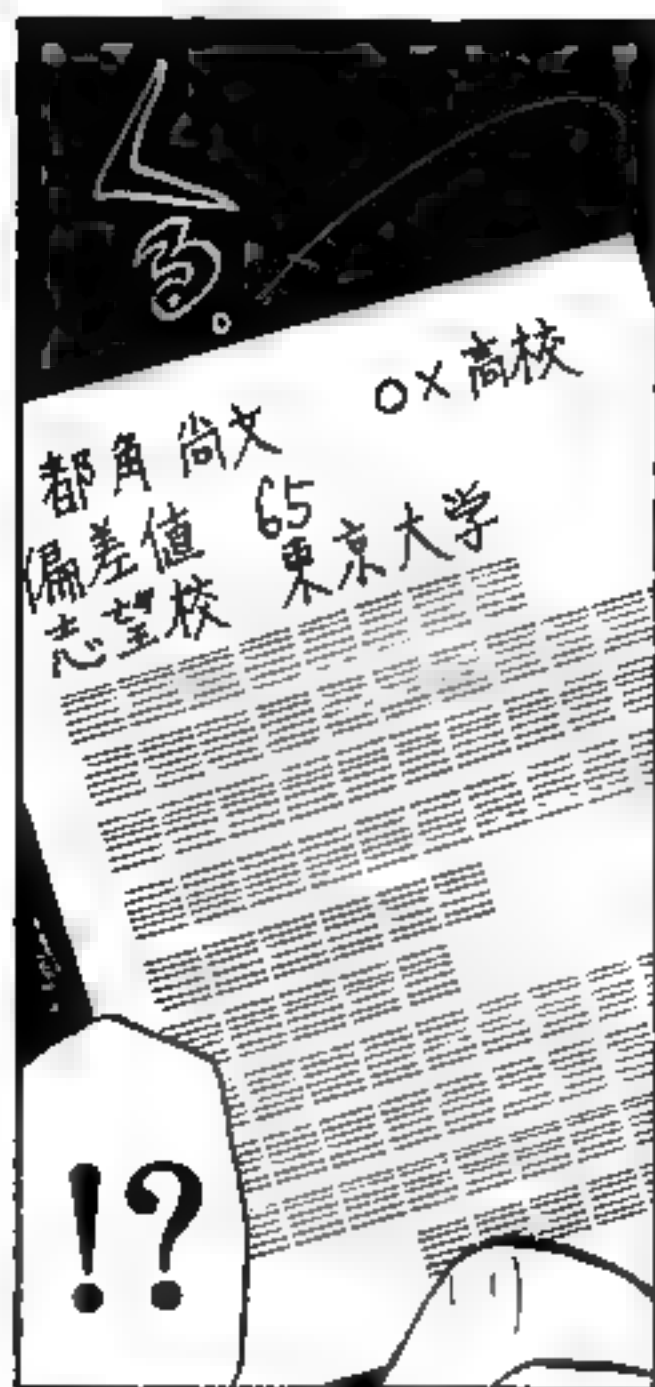 くる。
○×高校
都角 尚文
偏差値 65
志望校 東京大学
!?